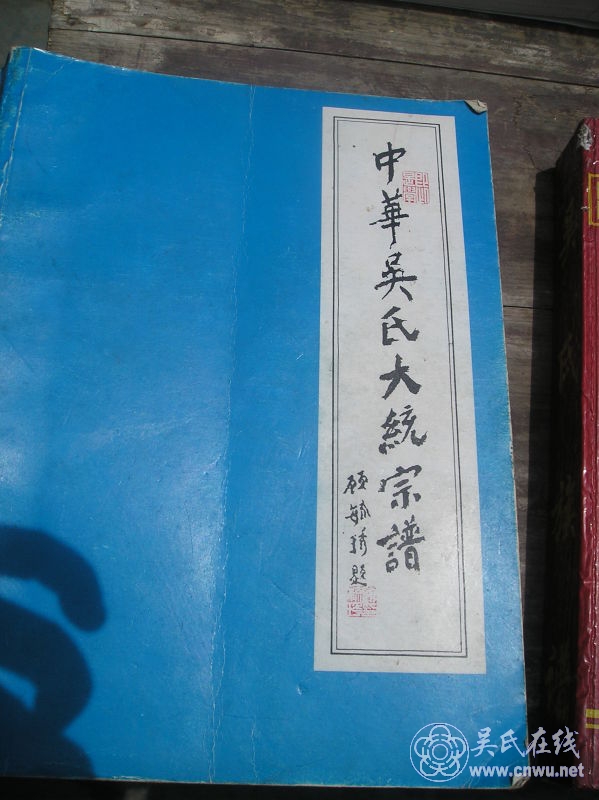 中華吳氏大統宗譜
顧毓琇題
吴氏在线
www.cnwu.net